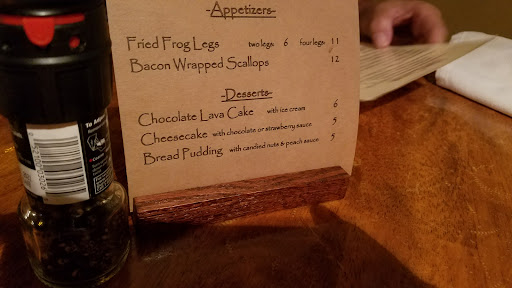 -Appetizers-
Fried Frog Legs two legs 6 four legs 11
Bacon Wrapped Scallops 12
-Desserts-
Chocolate Lava Cake with ice cream 6
Cheesecake with chocolate or strawberry sauce 5
Bread Pudding with candied nuts & peach sauce 5